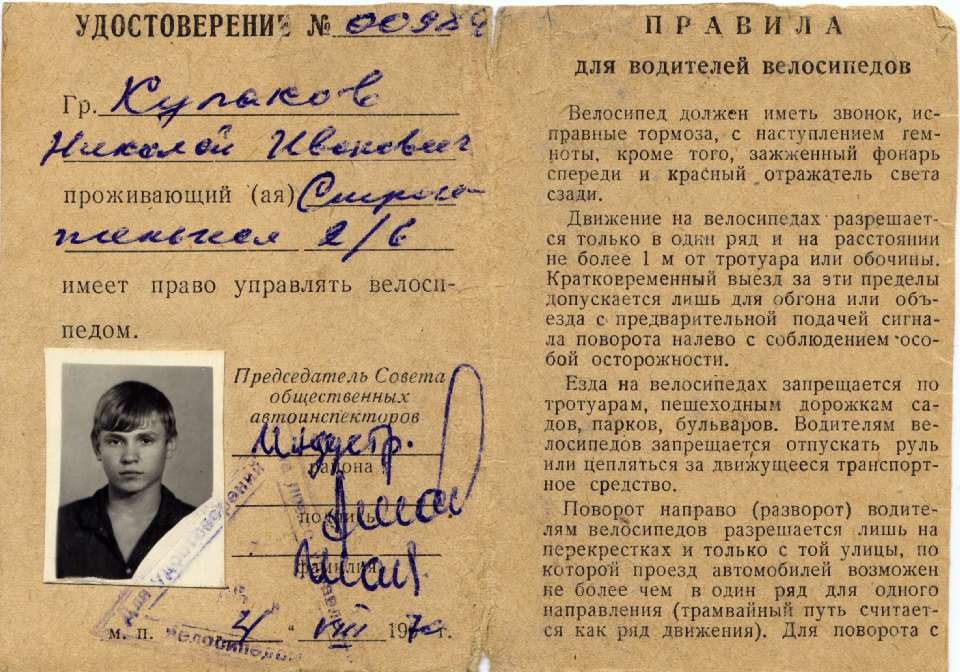 УДОСТОВЕРЕНИЕ № 00984
Гр. Кулаков
Николай Иванович
проживающий (ая)
2/6
имеет право управлять велоси-
педом.
Председатель Совета
общественных
автоинспекторов
Индустр.
района
подпись
фамилия
для удостоверений
м. п. " 4 " VIII 1970 г.
ПРАВИЛА
для водителей велосипедов
Велосипед должен иметь звонок, ис-
правные тормоза, с наступлением тем-
ноты, кроме того, зажженный фонарь
спереди и красный отражатель света
сзади.
Движение на велосипедах разрешает-
ся только в один ряд и на расстоянии
не более 1 м от тротуара или обочины.
Кратковременный выезд за эти пределы
допускается лишь для обгона или объ-
езда с предварительной подачей сигна-
ла поворота налево с соблюдением осо-
бой осторожности.
Езда на велосипедах запрещается по
тротуарам, пешеходным дорожкам са-
дов, парков, бульваров. Водителям ве-
лосипедов запрещается отпускать руль
или цепляться за движущееся транспорт-
ное средство.
Поворот направо (разворот) водите-
лям велосипедов разрешается лишь на
перекрестках и только с той улицы, по
которой проезд автомобилей возможен
не более чем в один ряд для одного
направления (трамвайный путь считает-
ся как ряд движения). Для поворота с